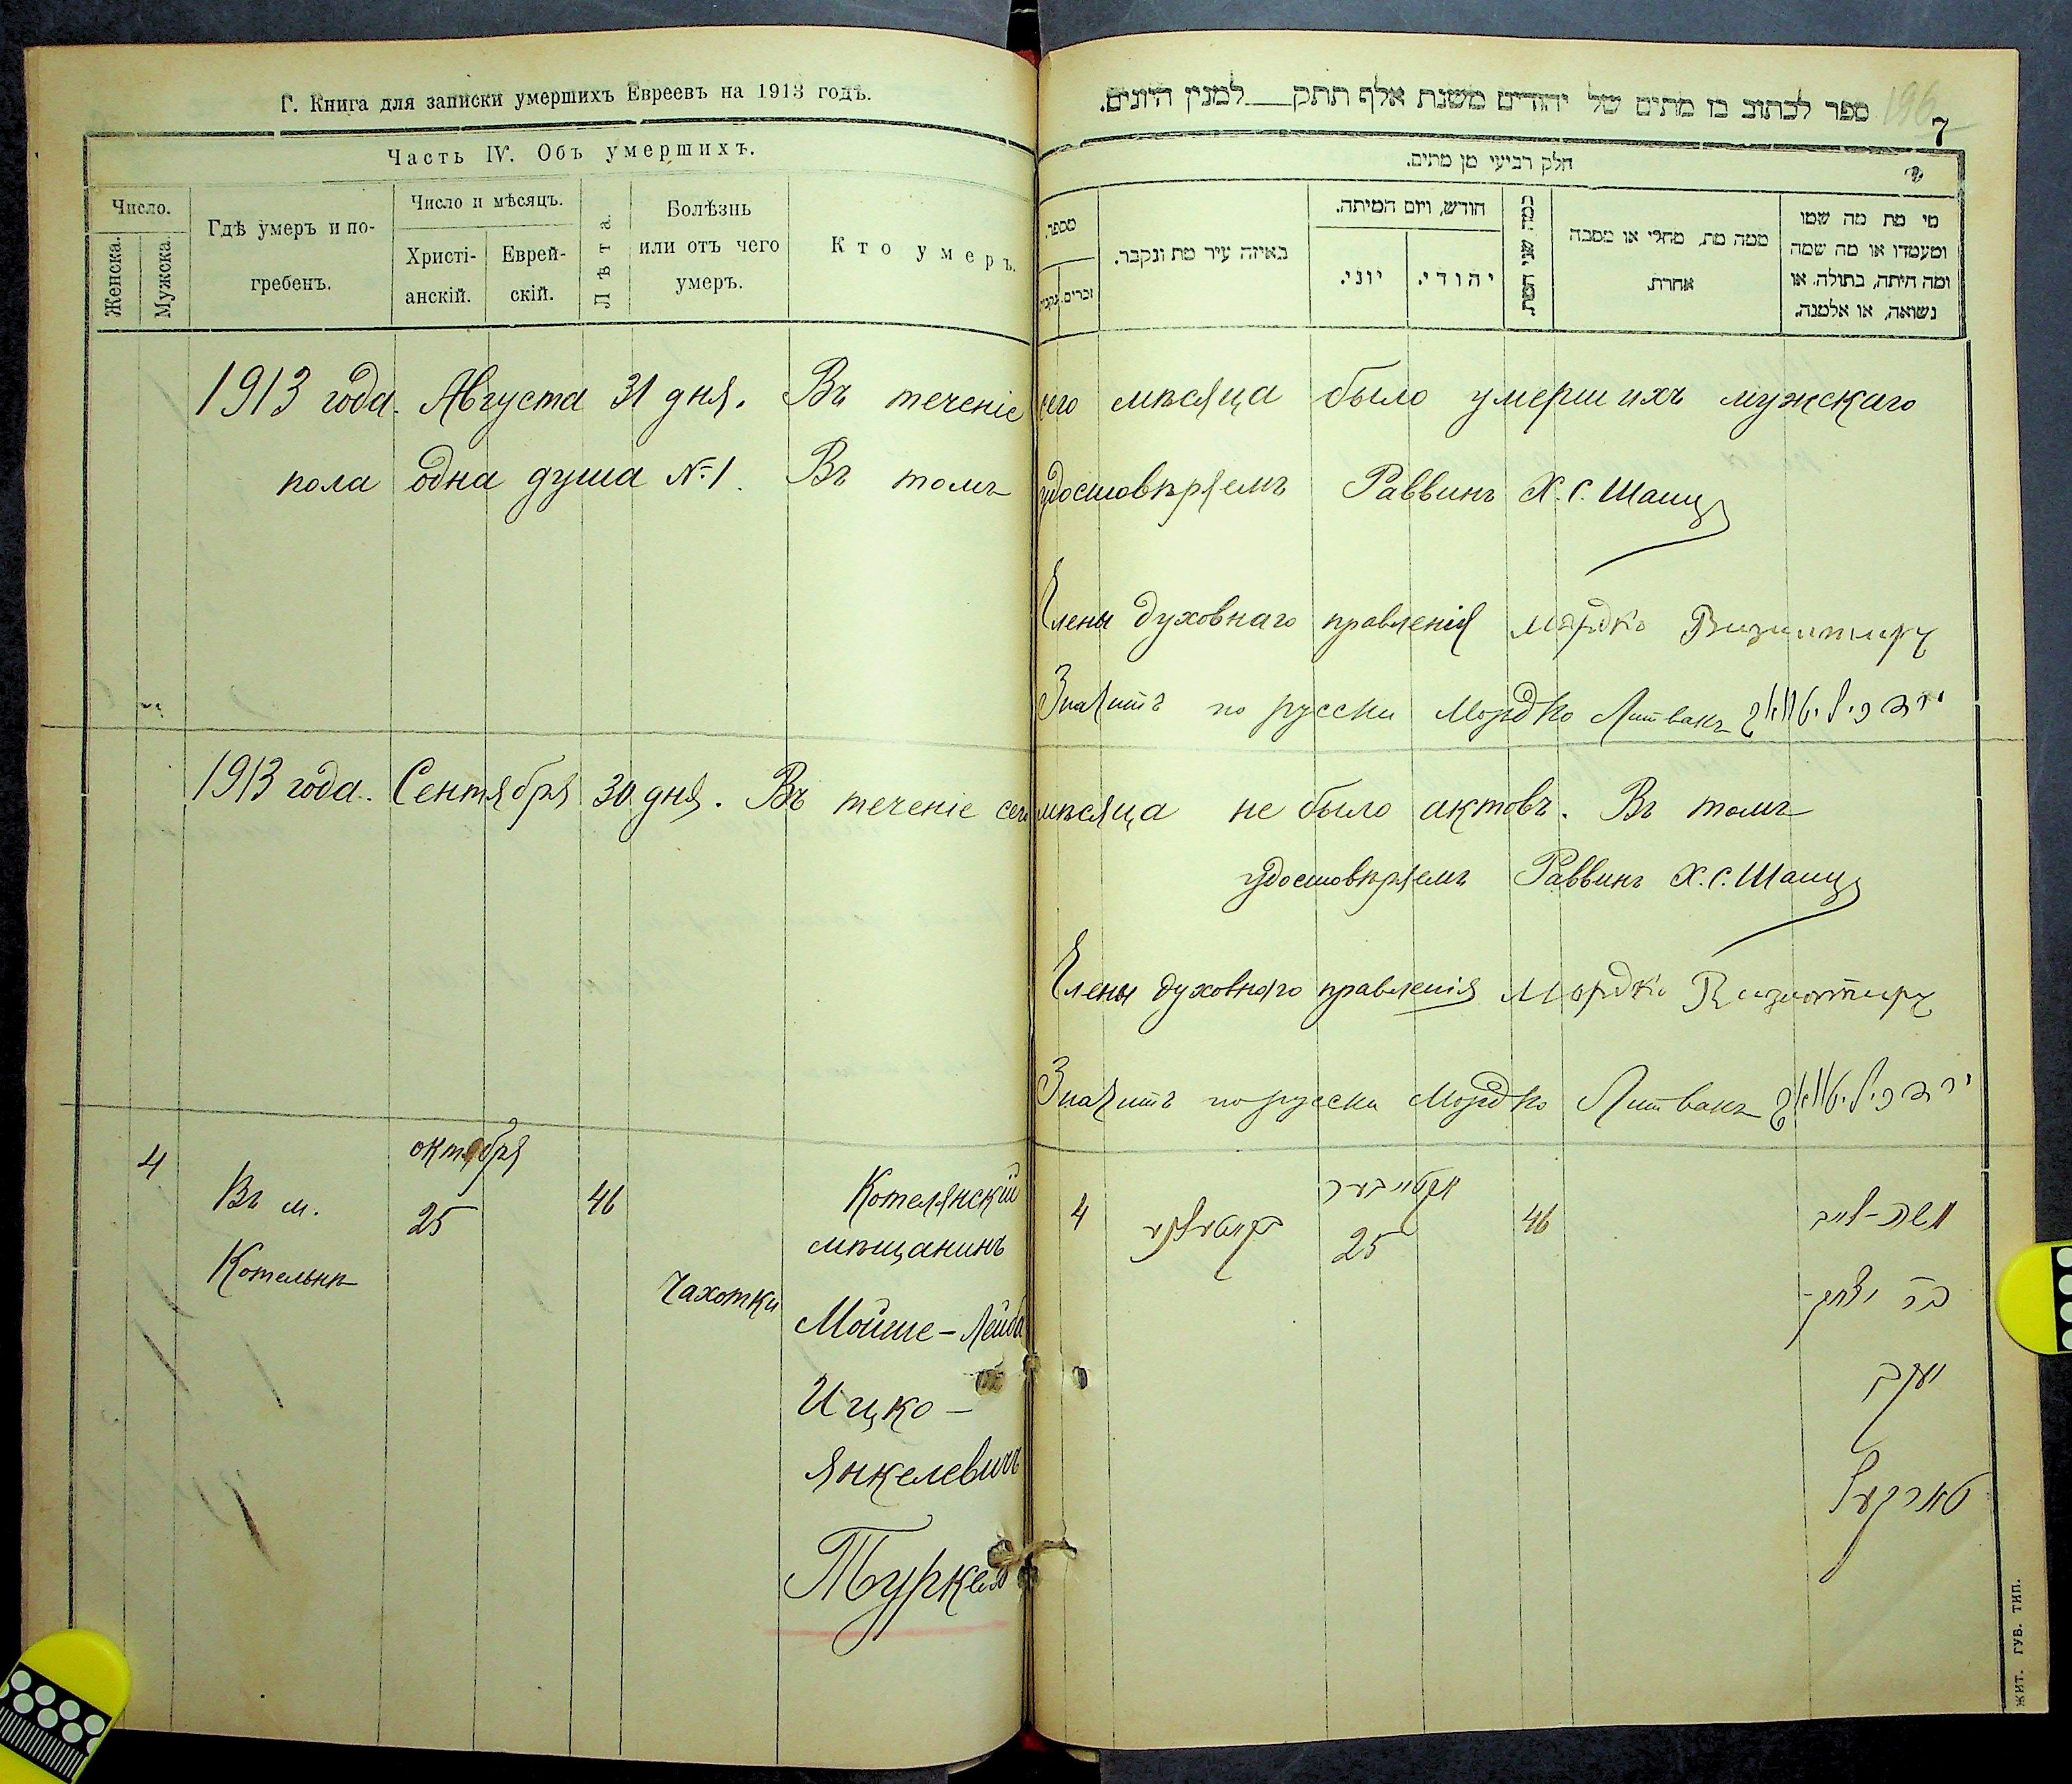 Г. Книга для записки умершихъ Евреевъ на 1913 годъ.
Часть IV. Объ умершихъ.
Число.
Женска.
Мужска.
Гдѣ умеръ и по-
гребенъ.
Число и мѣсяцъ.
Христі-
анскій.
Еврей-
скій.
Лѣта.
Болѣзнь
или отъ чего
умеръ.
Кто умеръ.
ספר לכתוב בו מתים של יהודים משנת אלף תתק___למנין היונים.
196
7
חלק רביעי מן מתים.
מספר.
זכרים.
נקבות.
באיזה עיר מת ונקבר.
חודש, ויום המיתה.
יוני.
יהודי.
כמה שני המת.
ממה מת, מחלי או מסבה
אחרת.
מי מת מה שמו
ומעמדו או מה שמה
ומה היתה, בתולה, או
נשואה, או אלמנה.
1913 года. Августа 31 дня. Въ теченіе сего мѣсяца было умершихъ мужскаго
пола одна душа №1. Въ томъ удостовѣряемъ Раввинъ Х. С. Шапиръ
Члены духовнаго правленія Мордко
Значитъ по русски Мордко Литвакъ
1913 года. Сентября 30 дня. Въ теченіе сего мѣсяца не было актовъ. Въ томъ
удостовѣряемъ Раввинъ Х. С. Шапиръ
Члены духовнаго правленія Мордко
Значитъ по русски Мордко Литвакъ
4
Въ м.
Котельнѣ
октября
25
46
Чахотки
Котелянскій
мѣщанинъ
Мойше-Лейба
Ицко-
Янкелевичъ
Туркел
4
אקטיאברא
25
46
משה-לייב
בר יצחק-
יעקב
טורקעל
ЖИТ. ГУБ. ТИП.